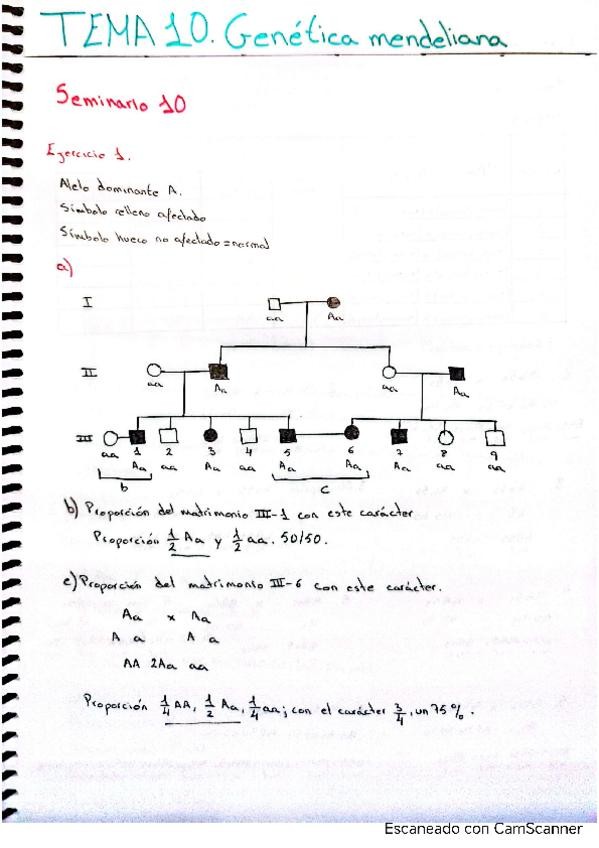 TEMA 10. Genética mendeliana
Seminario 10
Ejercicio 1.
Alelo dominante A.
Símbolo relleno afectado
Símbolo hueco no afectado = normal
a)
I
aa Aa
II
aa Aa aa Aa
III
aa 1 2 3 4 5 6 7 8 9
Aa aa Aa aa Aa Aa Aa aa aa
b c
b) Proporción del matrimonio III-1 con este carácter
Proporción 1/2 Aa y 1/2 aa. 50/50.
c) Proporción del matrimonio III-6 con este carácter.
Aa x Aa
A a A a
AA 2Aa aa
Proporción 1/4 AA, 1/2 Aa, 1/4 aa; con el carácter 3/4, un 75%.
Escaneado con CamScanner